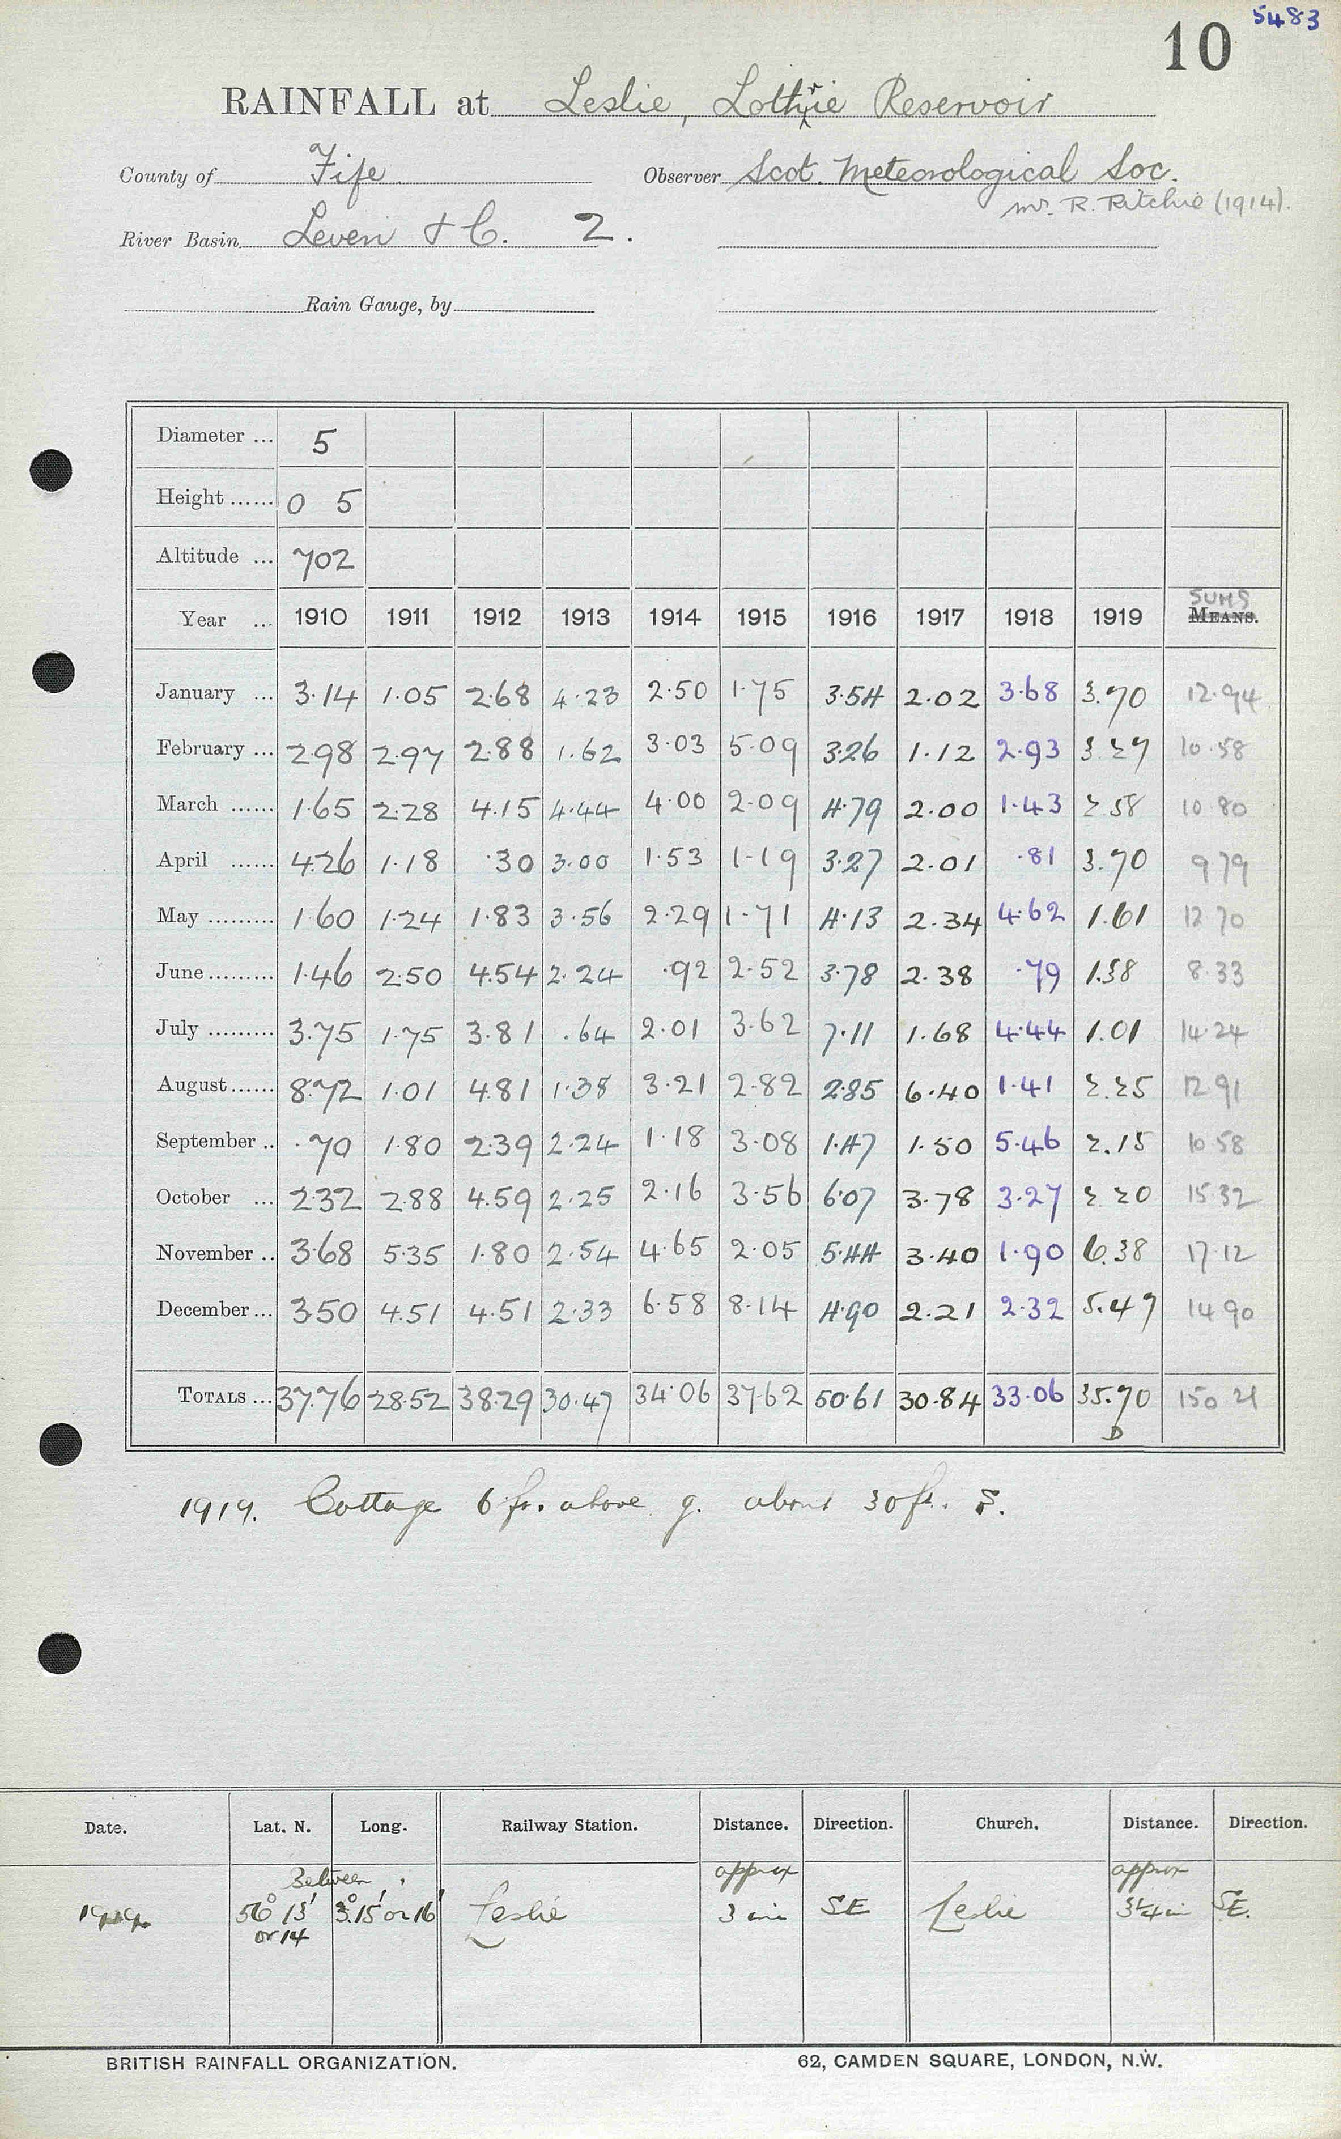 5483
10
RAINFALL at Leslie, Lothrie Reservoir
County of Fife Observer Scot. Meteorological Soc.
Mr. R. Ritchie (1914).
River Basin Leven & C. 2.
Rain Gauge, by
Diameter ... 5
Height ...... 0 5
Altitude ... 702
SUMS
Year ... 1910 1911 1912 1913 1914 1915 1916 1917 1918 1919 MEANS.
January ... 3.14 1.05 2.68 4.23 2.50 1.75 3.54 2.02 3.68 3.70 12.94
February ... 2.98 2.97 2.88 1.62 3.03 5.09 3.26 1.12 2.93 3.27 10.58
March ...... 1.65 2.28 4.15 4.44 4.00 2.09 4.79 2.00 1.43 2.58 10 80
April ...... 4.26 1.18 .30 3.00 1.53 1.19 3.27 2.01 .81 3.70 9 79
May ......... 1.60 1.24 1.83 3.56 2.29 1.71 4.13 2.34 4.62 1.61 12 70
June ......... 1.46 2.50 4.54 2.24 .92 2.52 3.78 2.38 .79 1.38 8.33
July ......... 3.75 1.75 3.81 .64 2.01 3.62 7.11 1.68 4.44 1.01 14.24
August ...... 8.72 1.01 4.81 1.38 3.21 2.82 2.85 6.40 1.41 2.25 12 91
September .. .70 1.80 2.39 2.24 1.18 3.08 1.47 1.50 5.46 2.15 10 58
October ... 2.32 2.88 4.59 2.25 2.16 3.56 6.07 3.78 3.27 2.20 15 32
November .. 3.68 5.35 1.80 2.54 4.65 2.05 5.44 3.40 1.90 6.38 17.12
December ... 3.50 4.51 4.51 2.33 6.58 8.14 4.90 2.21 2.32 5.47 14 90
TOTALS ... 37.76 28.52 38.29 30.47 34.06 37.62 50.61 30.84 33.06 35.70 150 21
D
1919. Cottage 6 ft. above g. about 30 ft. S.
Date. Lat. N. Long. Railway Station. Distance. Direction. Church. Distance. Direction.
Between approx approx
1919 56° 13' 3° 15' or 16' Leslie 3 mi SE Leslie 3¼ mi SE.
or 14
BRITISH RAINFALL ORGANIZATION. 62, CAMDEN SQUARE, LONDON, N.W.